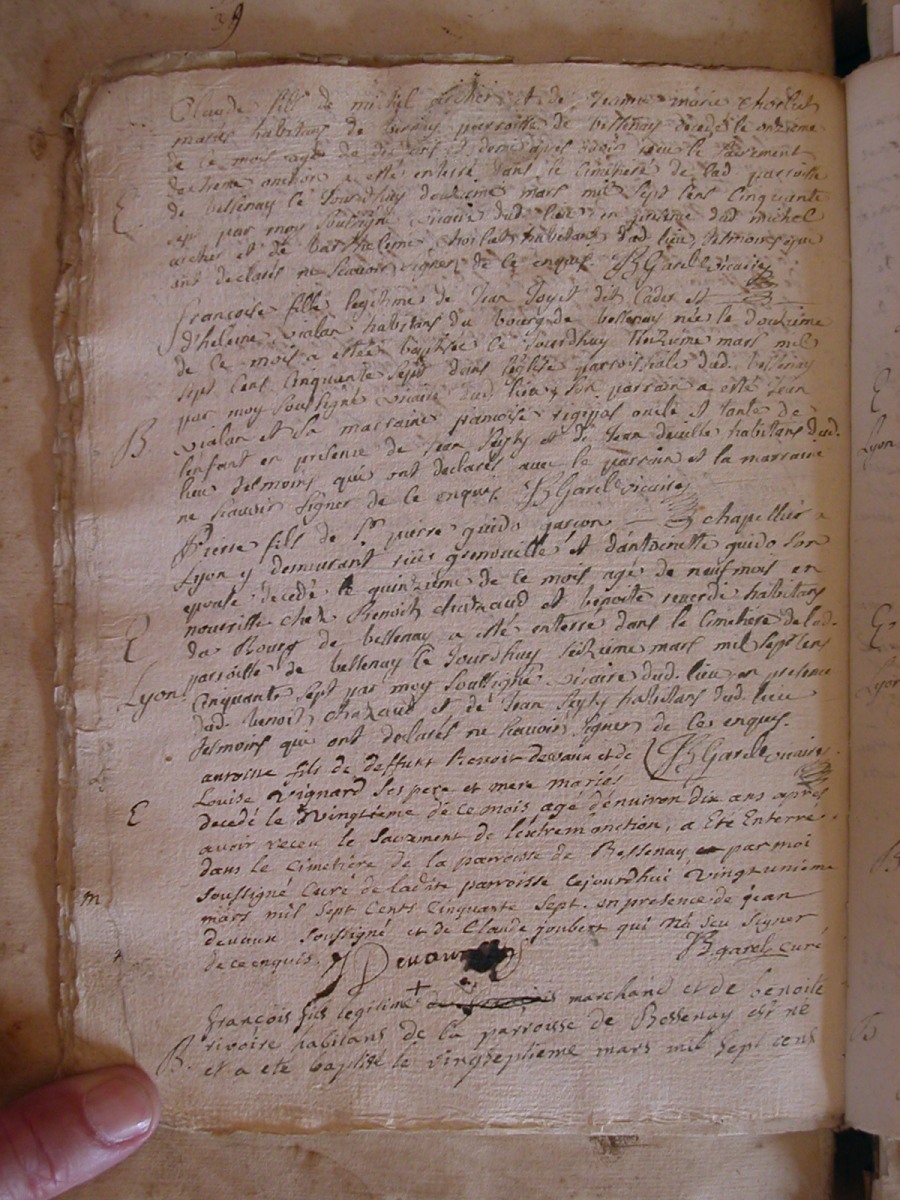 29
Claude fils de michel archer et de Jeanne marie chollet
mariés habitans de parroisse de bessenay decedé le onzieme
de ce mois agé de dix ans et demi après avoir receu le sacrement
dextreme onction a esté enterré dans le Cimetiere de lad. parroisse
E
de bessenay ce Jourdhuy douzieme mars mil sept cens cinquante
sept par moy soussigné vicaire dud. lieu en presence dud. michel
archer et de Barthelemi chollet habitans dud. lieu, tesmoins qui
ont declarés ne scavoir signer de ce enquis. JB Garel vicaire
françoise fille legitime de Jean Joyet dit Cadet et
d'heleine vialan habitans du bourg de bessenay née le douzieme
de ce mois a estée baptisée ce Jourdhuy treizieme mars mil
sept cens Cinquante sept dans l'église parroissiale dud. bessenay
par moy soussigné vicaire dud. lieu, son parrain a esté Jean
B
vialan et sa marraine françoise oncle et tante de
l'enfant en presence de Jean et de Jean deville habitans dud.
lieu tesmoins qui ont declarés avec le parrain et la marraine
ne scavoir signer de ce enquis JB Garel vicaire
Pierre fils de Sr. pierre guido garçon chapellier a
Lyon y demeurant rüe grenouille et d'antoinette guido son
epouse decedé le quinzieme de ce mois agé de neuf mois en
nourisse chez Benoit chazaud et benoite reverdi habitans
E
du Bourg de bessenay a esté enterré dans le Cimetiere de lad.
Lyon
parroisse de bessenay ce Jourdhuy seizieme mars mil sept cens
Cinquante sept par moy soussigné vicaire dud. lieu en presence
dud. benoit chazaud et de Jean habitans dud. lieu
tesmoins qui ont declarés ne scavoir signer de ce enquis.
JB Garel vicaire
antoine fils de deffunt Benoit devaux et de
Louise vignard ses pere et mere mariés
E
decedé le vingtieme de ce mois agé d'environ dix ans après
avoir receu le sacrement de l'extremonction, a été enterré
dans le Cimetière de la parroisse de Bessenay par moi
m
soussigné Curé de ladite parroisse cejourdhui vingtunieme
mars mil sept cents cinquante sept. en presence de jean
devaux soussigné et de Claude joubert qui n'a sceu signer
de ce enquis. J Devaux JB garel curé
françois fils legitime marchand et de benoite
rivoire habitans de la parroisse de Bessenay est né
B
et a été baptisé le vingtseptieme mars mil sept cens
E
Lyon
E
Lyon